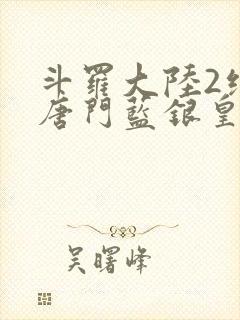 斗羅大陸2
唐門藍銀皇
吳曙峰